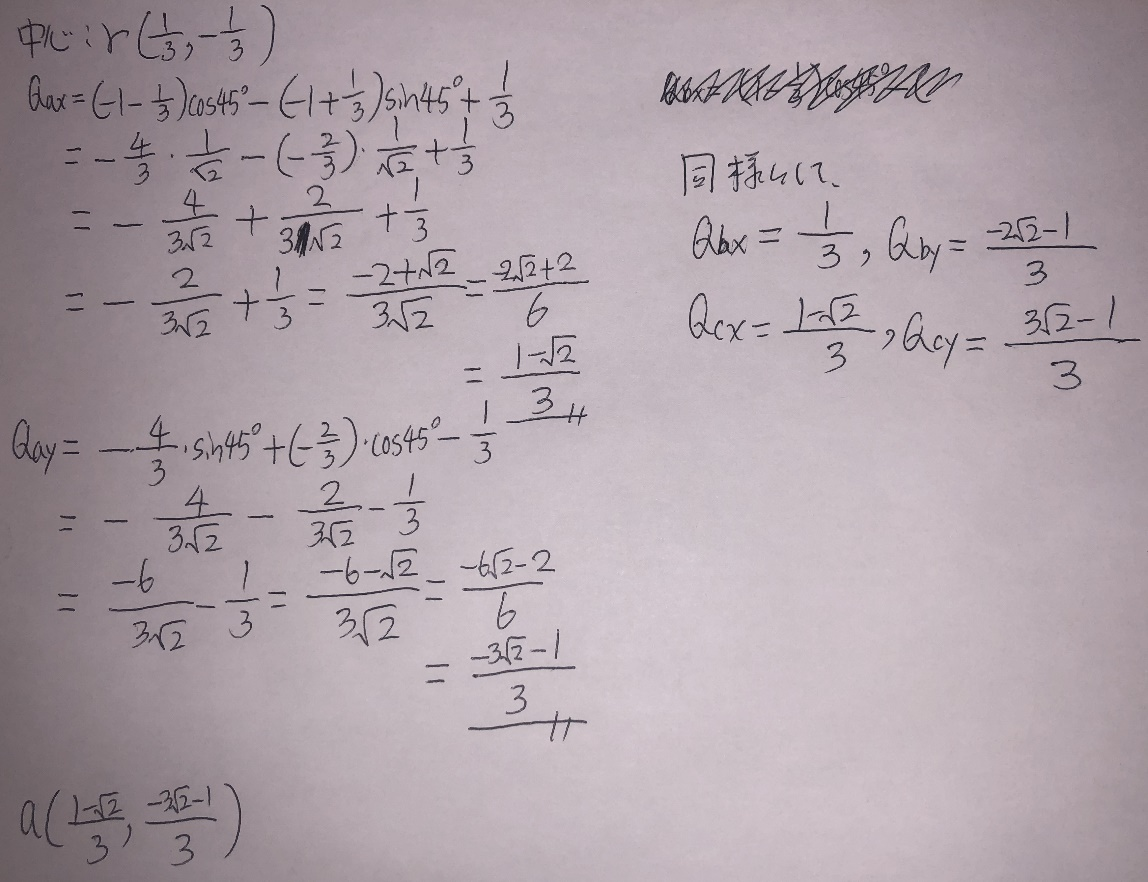 中心:r(1/3, -1/3)
Qax=(-1-1/3)cos45°-(-1+1/3)sin45°+1/3
=-4/3・1/√2-(-2/3)・1/√2+1/3
=-4/3√2+2/3√2+1/3
=-2/3√2+1/3=-2+√2/3√2=-2√2+2/6
=1-√2/3
Qay=-4/3・sin45°+(-2/3)・cos45°-1/3
=-4/3√2-2/3√2-1/3
=-6/3√2-1/3=-6-√2/3√2=-6√2-2/6
=-3√2-1/3
a(1-√2/3, -3√2-1/3)
同様にして、
Qbx=1/3, Qby=-2√2-1/3
Qcx=1-√2/3, Qcy=3√2-1/3